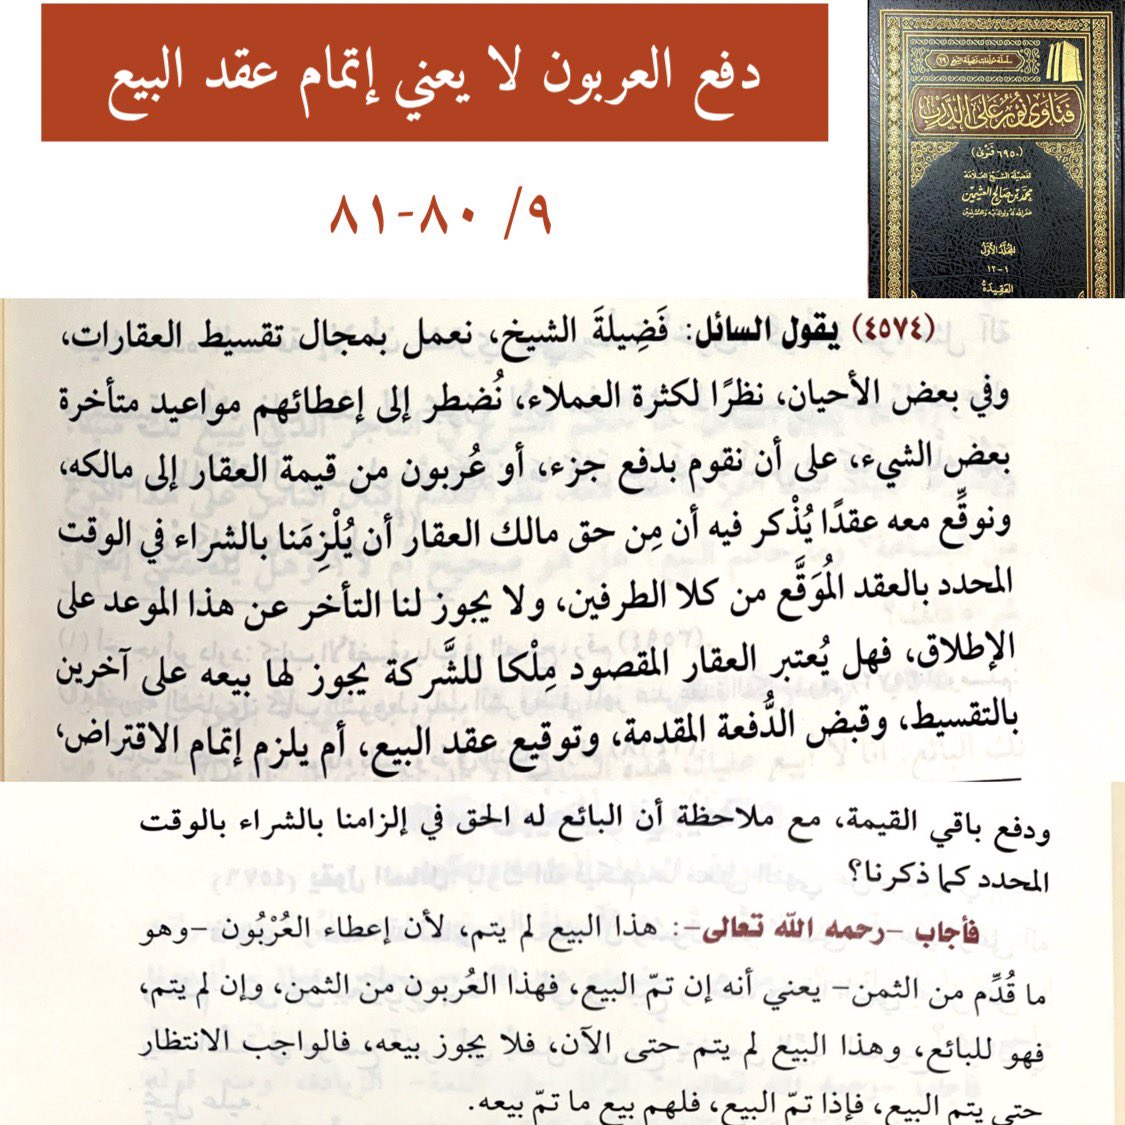 دفع العربون لا يعني إتمام عقد البيع
٩/ ٨٠-٨١
سلسلة مؤلفات فضيلة الشيخ (٦٩)
فتاوى نور على الدرب
(٦٩٥٠ فتوى)
لفضيلة الشيخ العلامة
محمد بن صالح العثيمين
غفر الله له ولوالديه وللمسلمين
المجلد الأول
١-١٢
العقيدة
(٤٥٧٤) يقول السائل: فَضِيلةَ الشيخ، نعمل بمجال تقسيط العقارات،
وفي بعض الأحيان، نظرًا لكثرة العملاء، نُضطر إلى إعطائهم مواعيد متأخرة
بعض الشيء، على أن نقوم بدفع جزء، أو عُربون من قيمة العقار إلى مالكه،
ونوقِّع معه عقدًا يُذْكر فيه أن مِن حق مالك العقار أن يُلْزِمَنا بالشراء في الوقت
المحدد بالعقد المُوَقَّع من كلا الطرفين، ولا يجوز لنا التأخر عن هذا الموعد على
الإطلاق، فهل يُعتبر العقار المقصود مِلْكا للشَّركة يجوز لها بيعه على آخرين
بالتقسيط، وقبض الدُّفعة المقدمة، وتوقيع عقد البيع، أم يلزم إتمام الاقتراض،
ودفع باقي القيمة، مع ملاحظة أن البائع له الحق في إلزامنا بالشراء بالوقت
المحدد كما ذكرنا؟
فأجاب -رحمه الله تعالى-: هذا البيع لم يتم، لأن إعطاء العُرْبُون -وهو
ما قُدِّم من الثمن- يعني أنه إن تمّ البيع، فهذا العُربون من الثمن، وإن لم يتم،
فهو للبائع، وهذا البيع لم يتم حتى الآن، فلا يجوز بيعه، فالواجب الانتظار
حتى يتم البيع، فإذا تمّ البيع، فلهم بيع ما تمّ بيعه.